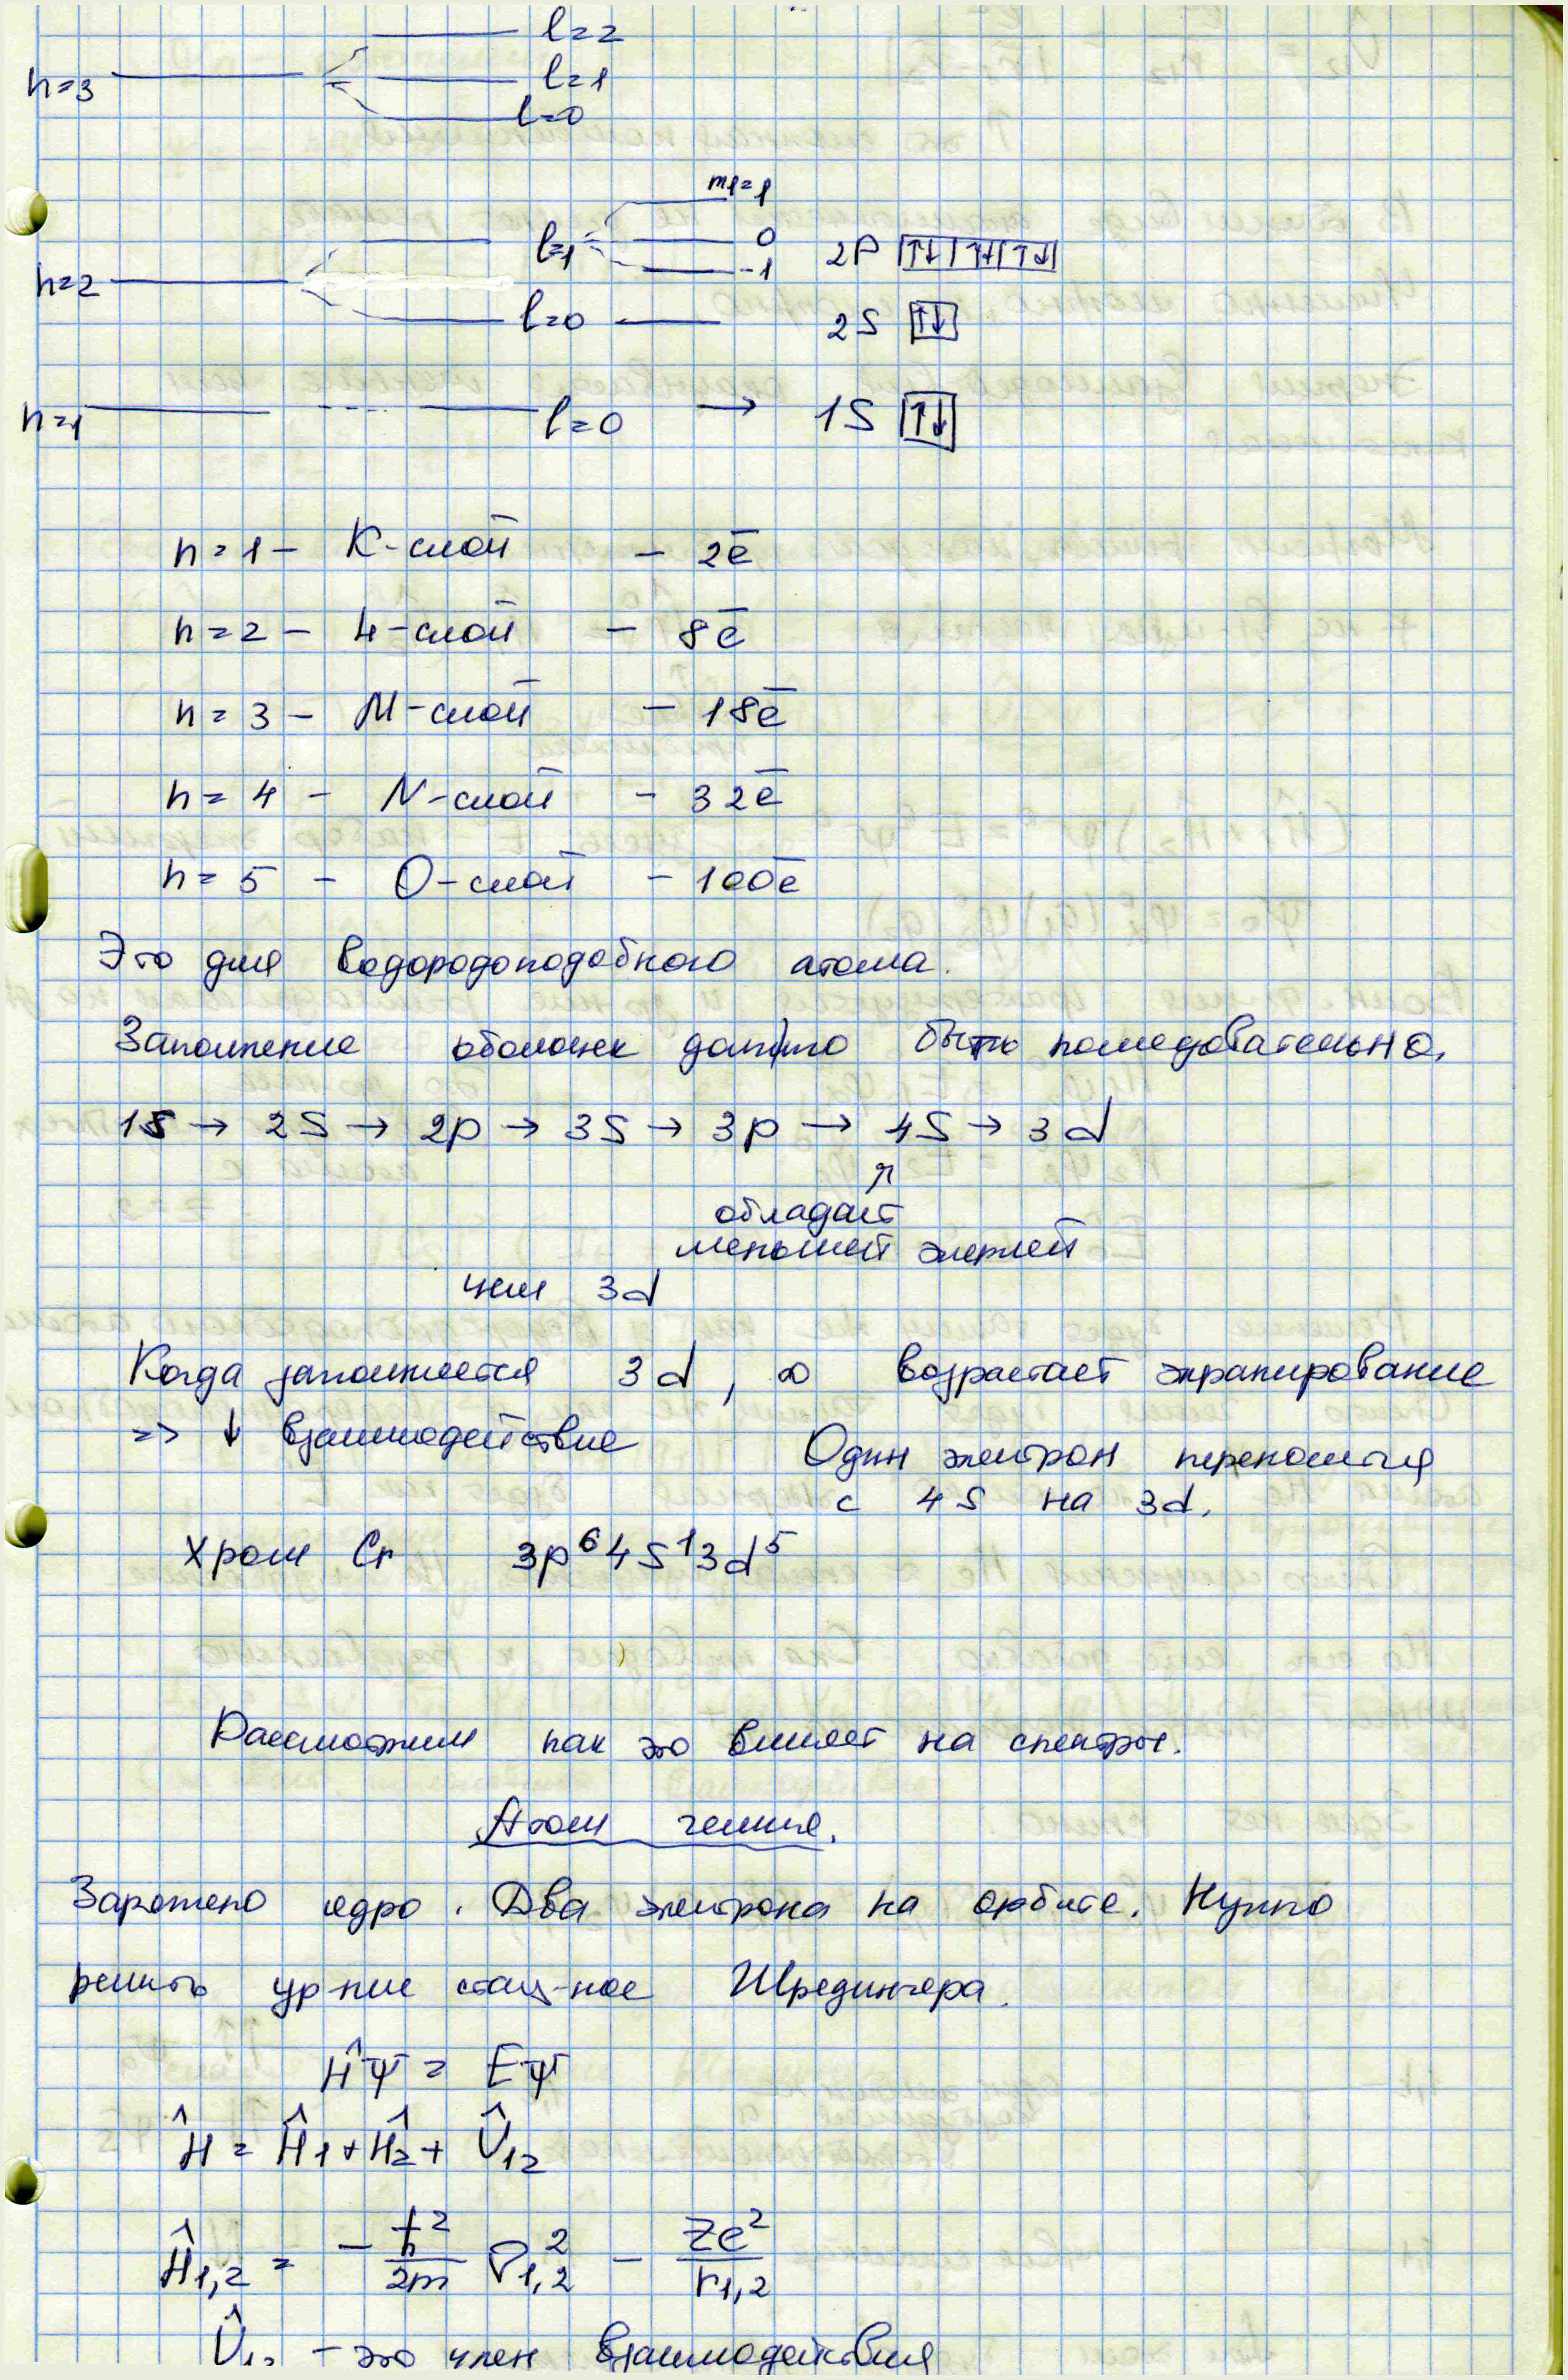 l=2
n=3 l=1
l=0
m_l=1
l=1 0 2P ↑↓ ↑↓ ↑↓
-1
n=2
l=0 2S ↑↓
n=1 l=0 → 1S ↑↓
n=1 – K-слой – 2ē
n=2 – L-слой – 8ē
n=3 – M-слой – 18ē
n=4 – N-слой – 32ē
n=5 – O-слой – 100ē
Это для водородоподобного атома.
Заполнение оболочек должно быть последовательно.
1S → 2S → 2p → 3S → 3p → 4S → 3d
↑
обладает
меньшей энергией
чем 3d
Когда заполняется 3d, возрастает экранирование
=> ↓ взаимодействие
Один электрон переносится
с 4S на 3d.
Хром Cr 3p⁶4S¹3d⁵
Рассмотрим как это влияет на спектры.
Атом гелия.
Заряжено ядро. Два электрона на орбите. Нужно
решить ур-ние стац-ное Шредингера.
ĤΨ = EΨ
Ĥ = Ĥ₁ + Ĥ₂ + Û₁₂
Ĥ₁,₂ = – ħ²/2m ∇²₁,₂ – Ze²/r₁,₂
Û₁₂ – это член взаимодействия